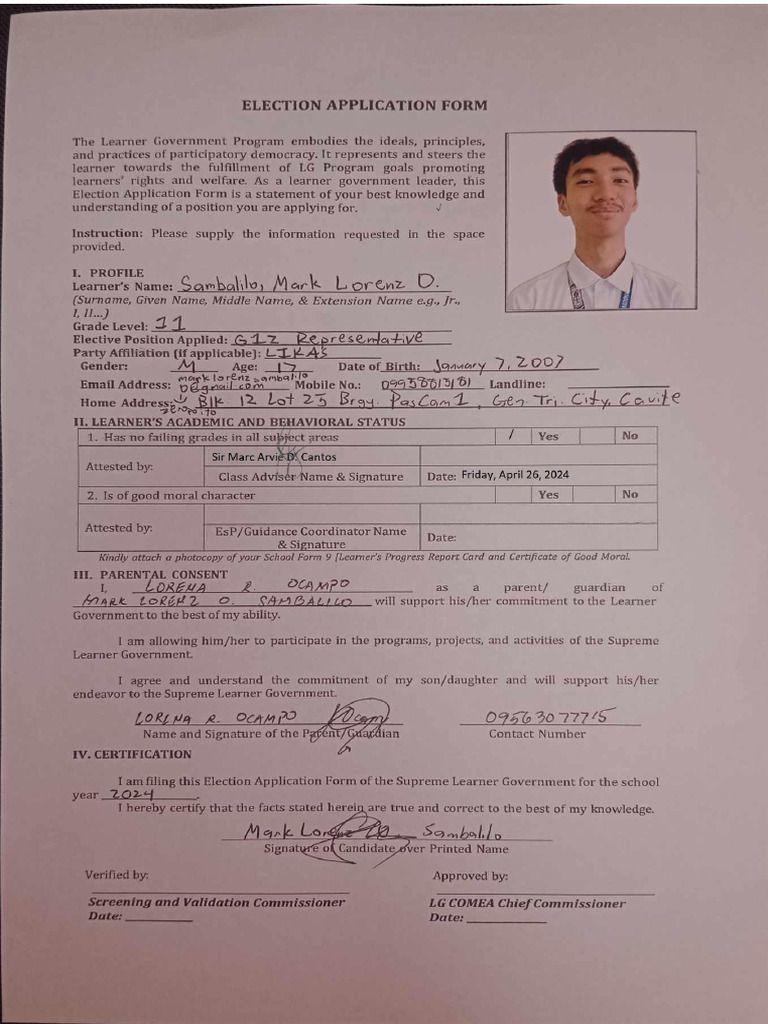 ELECTION APPLICATION FORM
The Learner Government Program embodies the ideals, principles,
and practices of participatory democracy. It represents and steers the
learner towards the fulfillment of LG Program goals promoting
learners' rights and welfare. As a learner government leader, this
Election Application Form is a statement of your best knowledge and
understanding of a position you are applying for.
Instruction: Please supply the information requested in the space
provided.
I. PROFILE
Learner's Name: Sambalilo, Mark Lorenz O.
(Surname, Given Name, Middle Name, & Extension Name e.g., Jr.,
I, II...)
Grade Level: 11
Elective Position Applied: G12 Representative
Party Affiliation (if applicable): LIKAS
Gender: M Age: 17 Date of Birth: January 7, 2007
Email Address: Mobile No.: Landline:
Home Address: Blk 12 Lot 25 Brgy. PasCam 1, Gen. Tri. City, Cavite
II. LEARNER'S ACADEMIC AND BEHAVIORAL STATUS
1. Has no failing grades in all subject areas / Yes No
Attested by: Sir Marc Arvie D. Cantos
Class Adviser Name & Signature Date: Friday, April 26, 2024
2. Is of good moral character Yes No
Attested by: EsP/Guidance Coordinator Name
& Signature Date:
Kindly attach a photocopy of your School Form 9 [Learner's Progress Report Card and Certificate of Good Moral.
III. PARENTAL CONSENT
I, LORENA R. OCAMPO as a parent/ guardian of
MARK LORENZ O. SAMBALILO will support his/her commitment to the Learner
Government to the best of my ability.
I am allowing him/her to participate in the programs, projects, and activities of the Supreme
Learner Government.
I agree and understand the commitment of my son/daughter and will support his/her
endeavor to the Supreme Learner Government.
LORENA R. OCAMPO 09563077715
Name and Signature of the Parent/Guardian Contact Number
IV. CERTIFICATION
I am filing this Election Application Form of the Supreme Learner Government for the school
year 2024.
I hereby certify that the facts stated herein are true and correct to the best of my knowledge.
Mark Lorenz O. Sambalilo
Signature of Candidate over Printed Name
Verified by: Approved by:
Screening and Validation Commissioner LG COMEA Chief Commissioner
Date: Date: